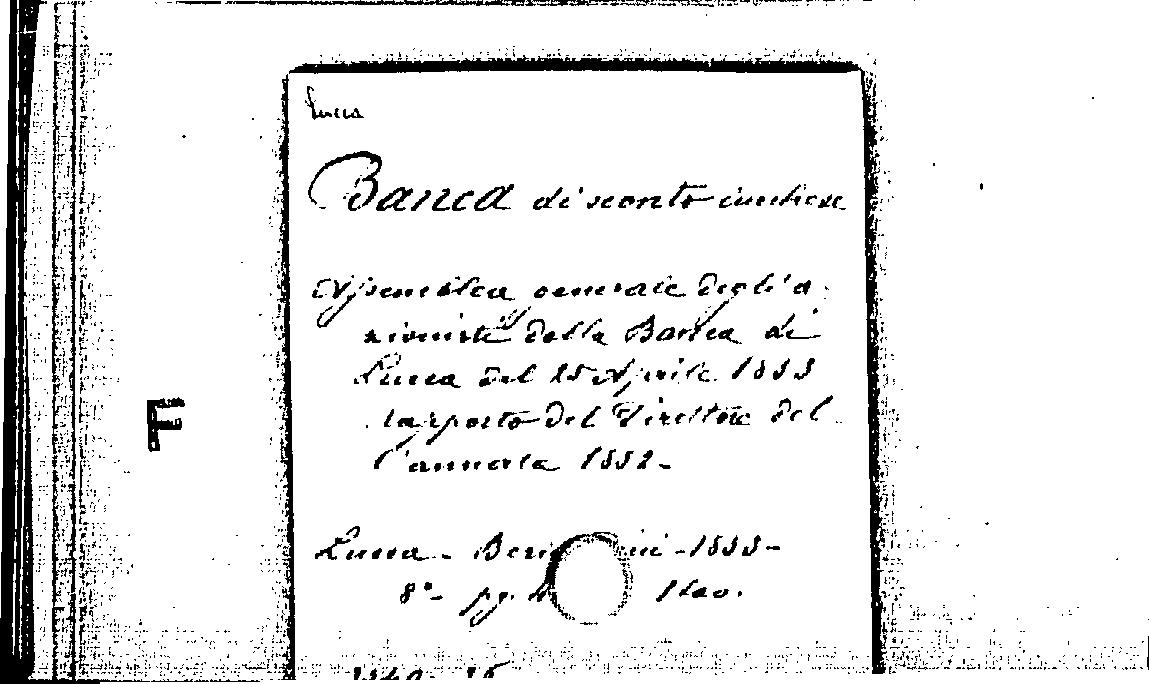 Lucca
Banca di sconto lucchese
Assemblea generale degli a
zionisti della Banca di
Lucca del 15 Aprile 1853
rapporto del Direttore del
l'annata 1852-
F
Lucca - -1853-
8°- pg. 1 tav.